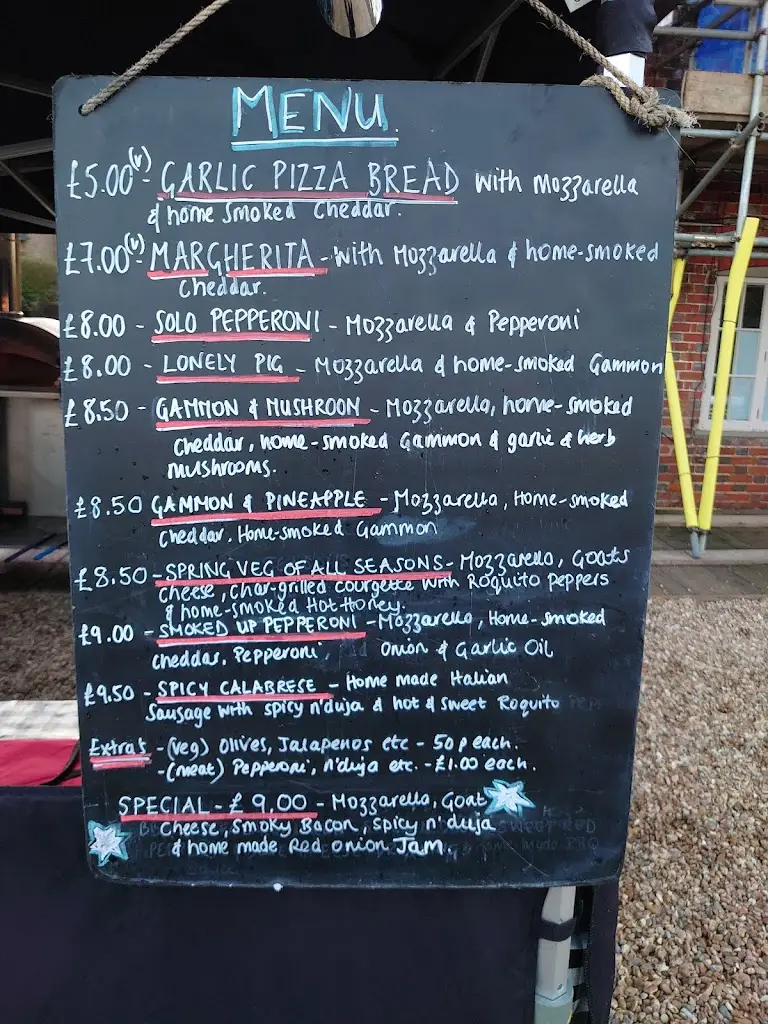 MENU.
£5.00 (v) - GARLIC PIZZA BREAD with Mozzarella
& home smoked Cheddar.
£7.00 (v) - MARGHERITA - with Mozzarella & home-smoked
cheddar.
£8.00 - SOLO PEPPERONI - Mozzarella & Pepperoni
£8.00 - LONELY PIG - Mozzarella & home-smoked Gammon
£8.50 - GAMMON & MUSHROON - Mozzarella, home-smoked
cheddar, home-smoked Gammon & garlic & herb
mushrooms.
£8.50 GAMMON & PINEAPPLE - Mozzarella, Home-smoked
cheddar, Home-smoked Gammon
£8.50 - SPRING VEG OF ALL SEASONS - Mozzarella, Goats
cheese, char-grilled courgette with Roquito peppers
& home-smoked Hot Honey.
£9.00 - SMOKED UP PEPPERONI - Mozzarella, Home-smoked
cheddar, Pepperoni, Onion & Garlic Oil
£9.50 - SPICY CALABRESE - Home made Italian
Sausage with spicy n'duja & hot & sweet Roquito
Extra's - (veg) Olives, Jalapenos etc - 50p each.
- (meat) Pepperoni, n'duja etc. - £1.00 each.
SPECIAL - £9.00 - Mozzarella, Goat
Cheese, Smoky Bacon, spicy n'duja
& home made Red onion Jam